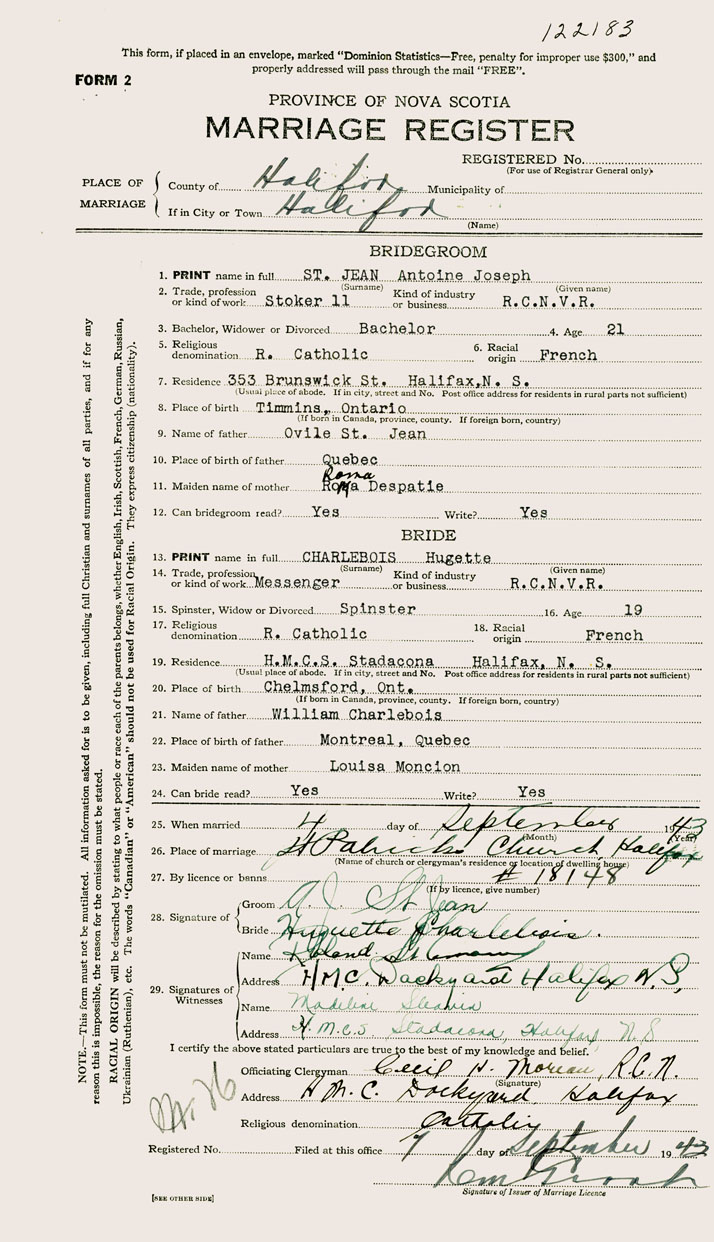 122183
This form, if placed in an envelope, marked "Dominion Statistics—Free, penalty for improper use $300," and
properly addressed will pass through the mail "FREE".
FORM 2
PROVINCE OF NOVA SCOTIA
MARRIAGE REGISTER
REGISTERED No.
(For use of Registrar General only)
PLACE OF MARRIAGE
County of Halifax Municipality of
If in City or Town Halifax
(Name)
BRIDEGROOM
1. PRINT name in full ST. JEAN Antoine Joseph
(Surname) (Given name)
2. Trade, profession or kind of work Stoker 11 Kind of industry or business R.C.N.V.R.
3. Bachelor, Widower or Divorced Bachelor 4. Age 21
5. Religious denomination R. Catholic 6. Racial origin French
7. Residence 353 Brunswick St. Halifax, N. S.
(Usual place of abode. If in city, street and No. Post office address for residents in rural parts not sufficient)
8. Place of birth Timmins, Ontario
(If born in Canada, province, county. If foreign born, country)
9. Name of father Ovile St. Jean
10. Place of birth of father Quebec
Roma
11. Maiden name of mother Roma Despatie
12. Can bridegroom read? Yes Write? Yes
BRIDE
13. PRINT name in full CHARLEBOIS Hugette
(Surname) (Given name)
14. Trade, profession or kind of work Messenger Kind of industry or business R.C.N.V.R.
15. Spinster, Widow or Divorced Spinster 16. Age 19
17. Religious denomination R. Catholic 18. Racial origin French
19. Residence H.M.C.S. Stadacona Halifax, N. S.
(Usual place of abode. If in city, street and No. Post office address for residents in rural parts not sufficient)
20. Place of birth Chelmsford, Ont.
(If born in Canada, province, county. If foreign born, country)
21. Name of father William Charlebois
22. Place of birth of father Montreal, Quebec
23. Maiden name of mother Louisa Moncion
24. Can bride read? Yes Write? Yes
25. When married 4 day of September 1943
(Month) (Year)
26. Place of marriage St Patricks Church Halifax
(Name of church or clergyman's residence or location of dwelling house)
27. By licence or banns # 18148
(If by licence, give number)
28. Signature of
Groom A. J. St Jean
Bride Huguette Charlebois.
29. Signatures of Witnesses
Name Roland
Address H.M.C. Dockyard Halifax N.S,
Name Madeline
Address H.M.C.S Stadacona, Halifax, N.S
I certify the above stated particulars are true to the best of my knowledge and belief.
Officiating Clergyman Cecil H. Moreau, R.C.N.
(Signature)
Address H.M.C. Dockyard Halifax
Religious denomination Catholic
Registered No. Filed at this office 7 day of September 1943
Signature of Issuer of Marriage Licence
[SEE OTHER SIDE]
NOTE.—This form must not be mutilated. All information asked for is to be given, including full Christian and surnames of all parties, and if for any
reason this is impossible, the reason for the omission must be stated.
RACIAL ORIGIN will be described by stating to what people or race each of the parents belongs, whether English, Irish, Scottish, French, German, Russian,
Ukrainian (Ruthenian), etc. The words "Canadian" or "American" should not be used for Racial Origin. They express citizenship (nationality).